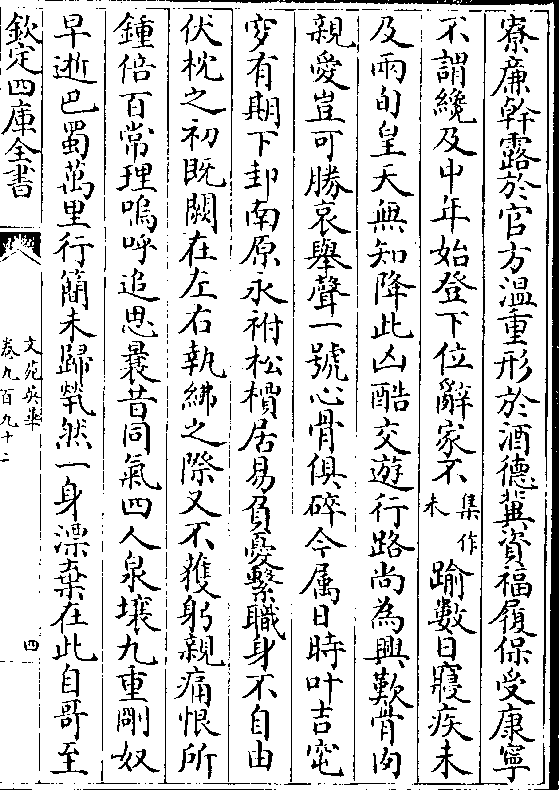 寮廉幹露於官方溫重形於酒德冀資福履保受康寧
不謂纔及中年始登下位辭家不集作未踰數日寢疾未
及兩旬皇天無知降此凶酷交遊行路尚為興歎骨肉
親愛豈可勝哀舉聲一號心骨俱碎今属日時叶吉窀
穸有期下邽南原永祔松檟居易負憂繫職身不自由
伏枕之初既闕在左右執紼之際又不獲躬親痛恨所
鍾倍百常理嗚呼追思曩昔同氣四人泉壤九重剛奴
早逝巴蜀萬里行簡未歸煢然一身漂棄在此自哥至
欽定四庫全書
文苑英華
卷九百九十二
四